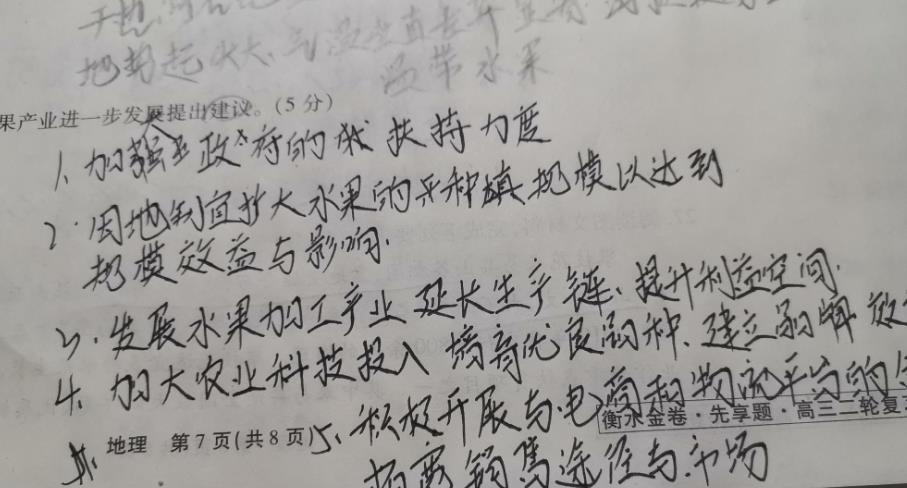 地势起伏大、气温垂直
温带水果
果产业进一步发展提出建议。(5 分)
1. 加强政府的扶持力度
2. 因地制宜扩大水果的种植规模以达到
规模效益与影响.
3. 发展水果加工产业 延长生产链、提升利益空间.
4. 加大农业科技投入 培育优良品种、建立品牌
5. 积极开展与电商和物流平台的
地理 第 7 页(共 8 页)
衡水金卷·先享题·高三二轮复
拓宽销售途径与市场